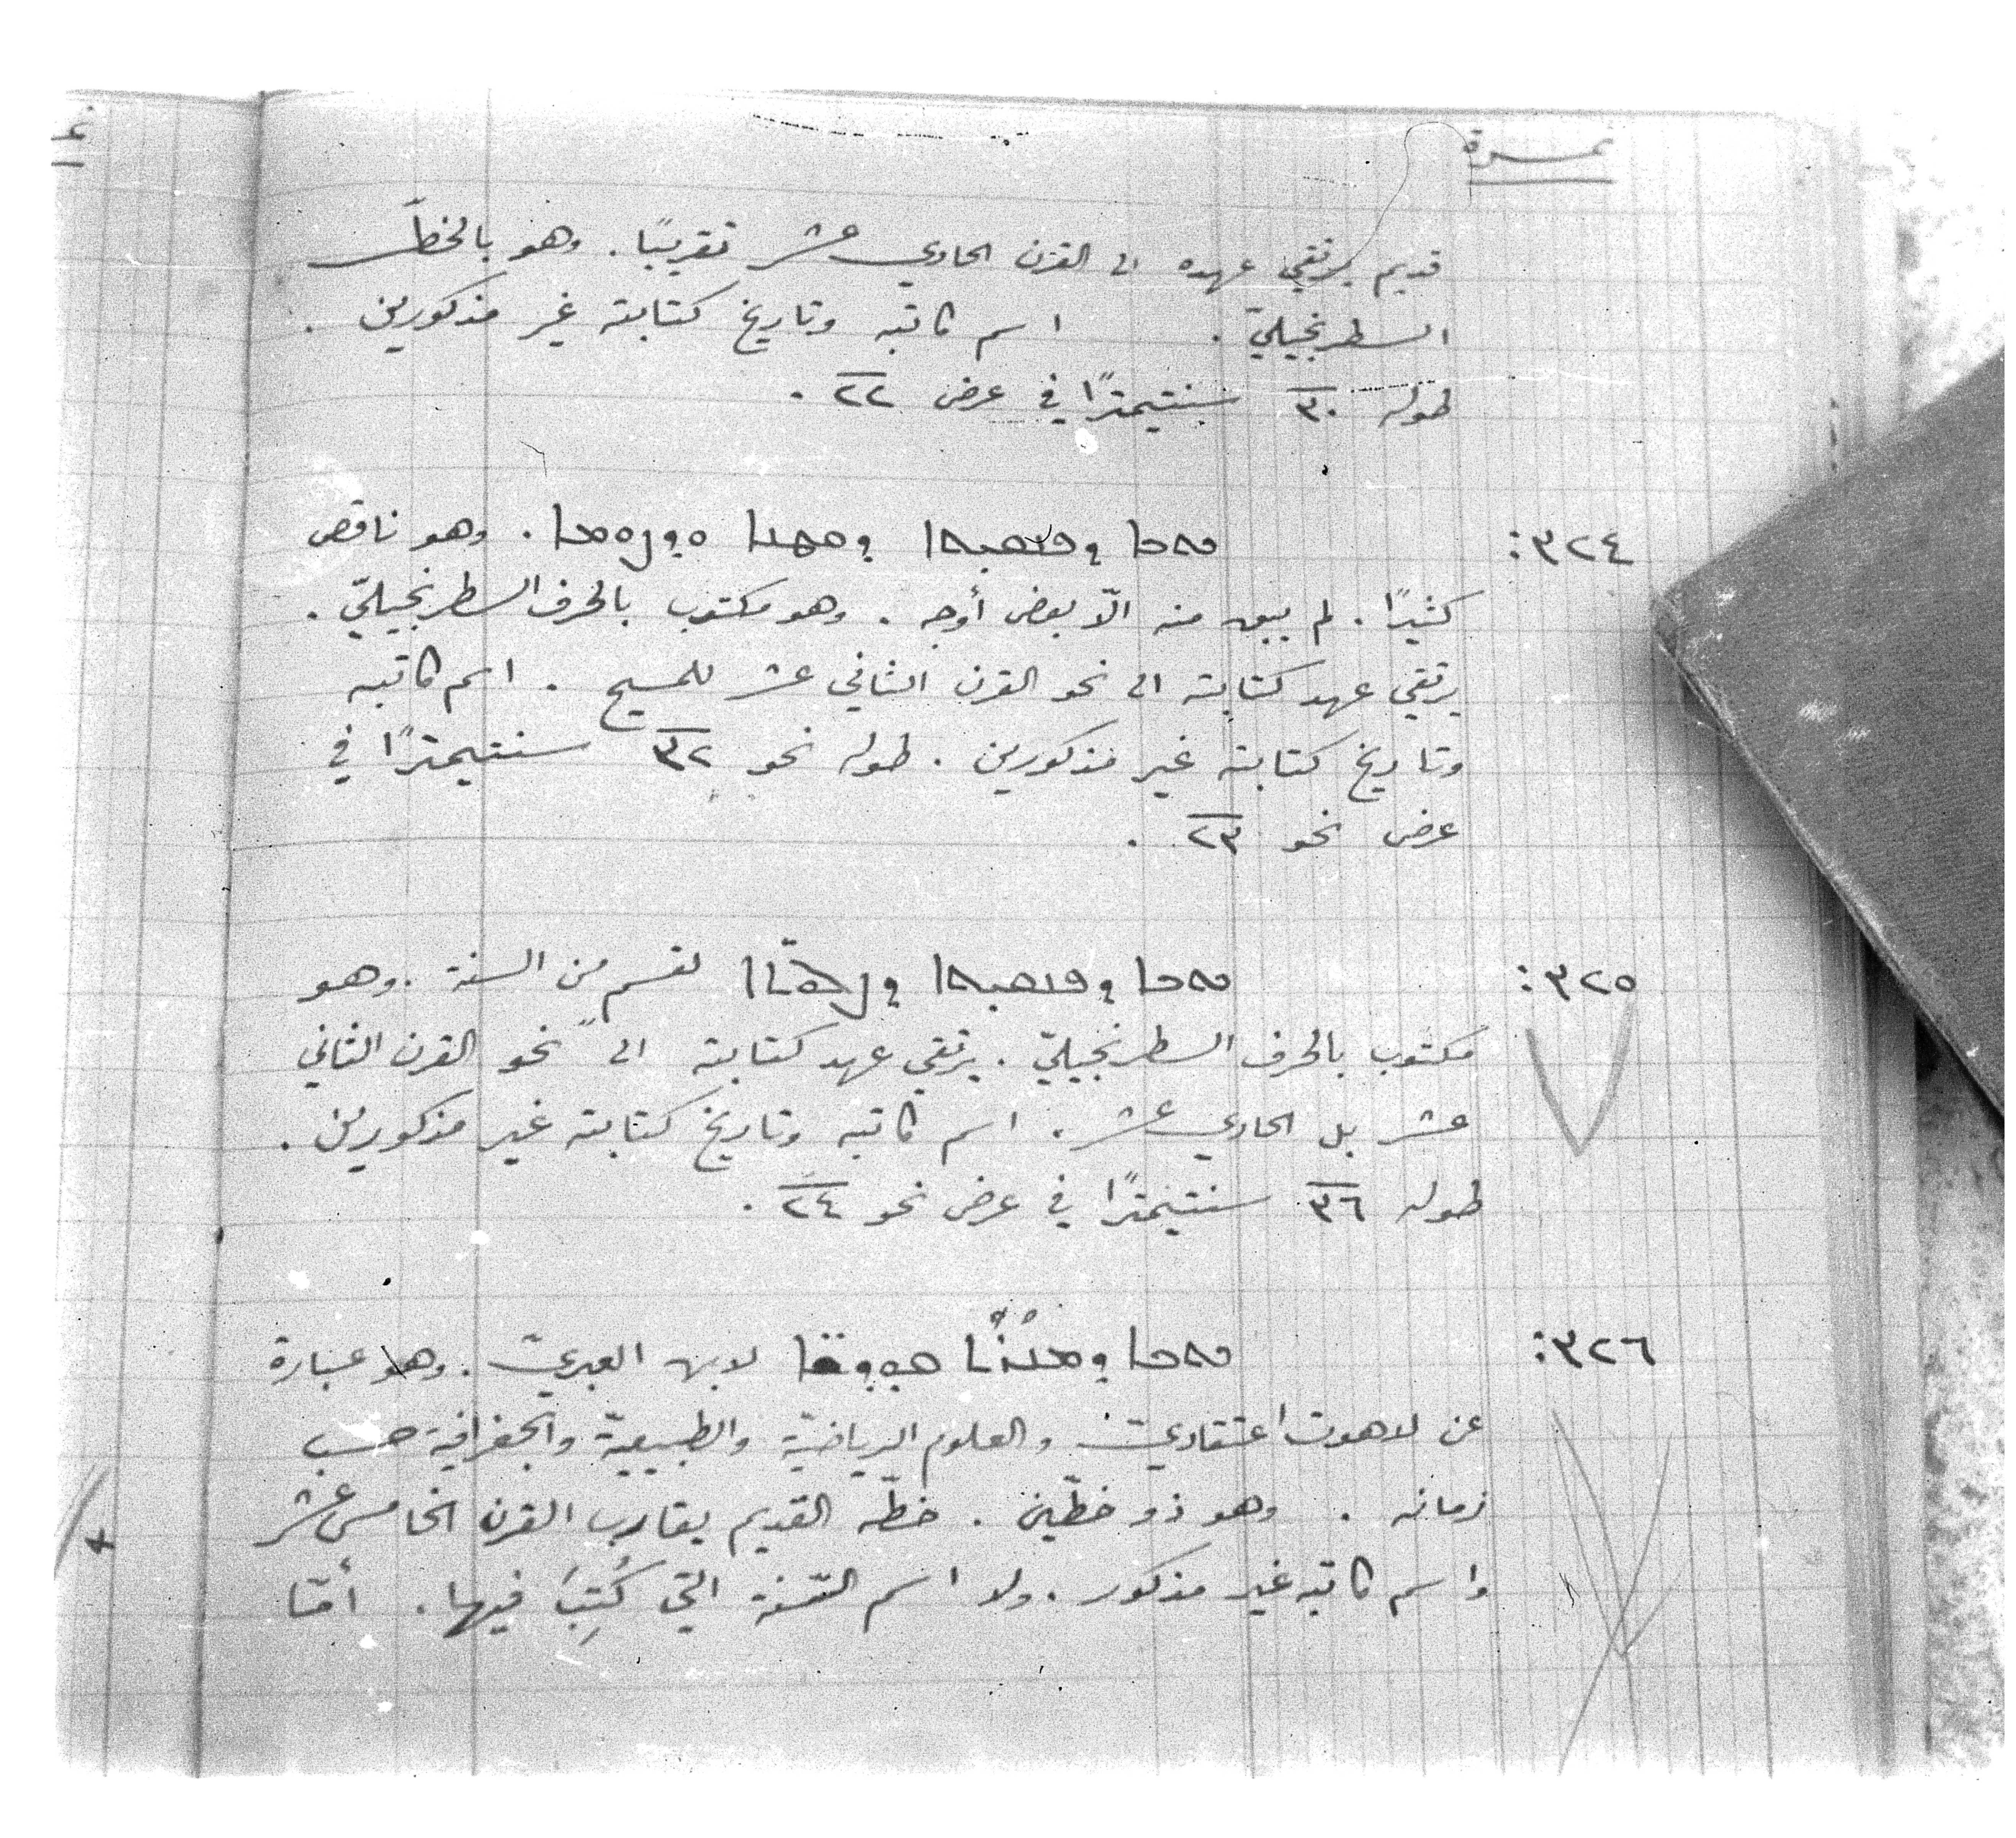 نمرة
قديم يرتقي عهده الى القرن الحادي عشر تقريبًا. وهو بالخطّ
السطرنجيليّ. اسم كاتبه وتاريخ كتابته غير مذكورين.
طوله ٣٠ سنتيمترًا في عرض ٢٢.
٣٢٤: ܟܬܒܐ ܕܦܢܩܝܬܐ ܕܣܬܘܐ ܘܕܨܘܡܐ. وهو ناقص
كثيرًا. لم يبق منه الّا بعض أوجه. وهو مكتوب بالحرف السطرنجيليّ.
يرتقي عهد كتابته الى نحو القرن الثاني عشر للمسيح. اسم كاتبه
وتاريخ كتابته غير مذكورين. طوله نحو ٣٢ سنتيمترًا في
عرض نحو ٢٣.
٣٢٥: ܟܬܒܐ ܕܦܢܩܝܬܐ لقسم من السنة. وهو
مكتوب بالحرف السطرنجيليّ. يرتقي عهد كتابته الى نحو القرن الثاني
عشر بل الحادي عشر. اسم كاتبه وتاريخ كتابته غير مذكورين.
طوله ٣٦ سنتيمترًا في عرض نحو ٢٤.
٣٢٦: ܟܬܒܐ ܕܡܢܪܬ ܩܘܕܫܐ لابن العبريّ. وهو عبارة
عن لاهوت اعتقاديّ والعلوم الرياضيّة والطبيعيّة والجغرافية حسب
زمانه. وهو ذو خطّين. خطّه القديم يقارب القرن الخامس عشر
واسم كاتبه غير مذكور. ولا اسم السّنة التي كُتِبَ فيها. أمّا